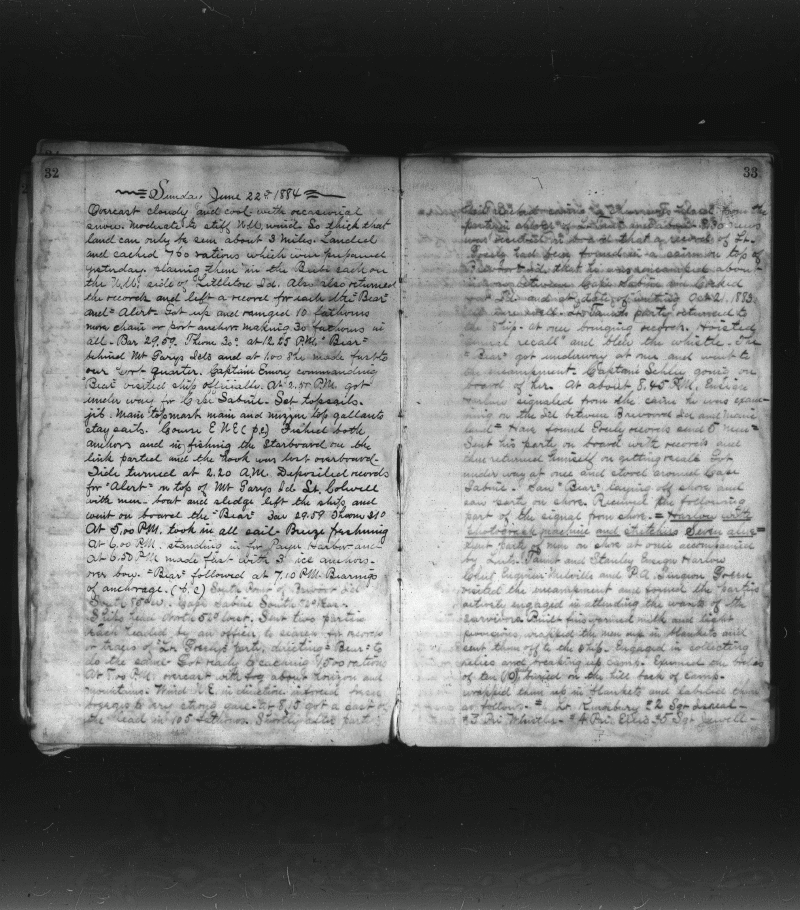 32
Sunday June 22nd 1884
Overcast cloudy and cool with occasional
snow. Moderate to stiff wind. So thick that
land can only be seen about 3 miles. Landed
and cached 760 rations which were prepared
yesterday. placing them in the on
the side of Littleton Id. Also returned
the records and left a record for each the "Bear"
and "Alert" Got up and ranged 10 fathoms
more chain on port anchor making 30 fathoms in
all. Bar 29.59. Thom 30° at 12.25 P.M. "Bear"
behind Mt Garys Ids and at 1.00 She made fast to
our port quarter. Captain Emory commanding
"Bear" visited ship officially. At 2.55 P.M. got
under way for Cape Sabine. Set topsails.
jib. Main topmast main and mizzen top gallant
stay sails. Course E N E (p.c.) Fished both
anchors and in fishing the Starboard on the
link parted and the hook was lost overboard.
Tide turned at 2.20 A.M. Deposited records
for "Alert" on top of Mt Garys Id Lt. Colwell
with men boat and sledge left the ship and
went on board the "Bear" Bar 29.59 Thom 31°
At 5.00 P.M. took in all sail. Breeze freshning
At 6.00 P.M. standing in for Payer Harbor and
at 6.50 P.M. made fast with 3 ice anchors
over bow. "Bear" followed at 7.10 P.M. Bearings
of anchorage. (p.c.) South Point of Brevoort Id
South 85° W. Cape Sabine South 72° East.
head North 52° West. Sent two parties
each headed by an officer to search for records
or traces of Lt. Greely's party, directing "Bear" to
do the same. Got ready 1500 rations
At 8.00 P.M. overcast with fog about horizon and
mountains. Wind N.E. in direction
to very strong gale. at 8.15 got a cast of
the lead in 105 fathoms. Shortly after part
33
from the
party in at 8.30 news
was on board that a record of Lt.
Greely had been found in a cairn on top of
Brevoort Id, that he was encamped about
between Cape Sabine and Cocked
Hat Id and at date of writing Oct. 21, 1883
all were well. party returned to
the Ship at once bringing records. Hoisted
general recall and blew the whistle. The
"Bear" got underway at once and went to
the encampment. Captain Schley going on
board of her. At about 8.45 P.M. Ensign
Harlow signaled from the cairn he was exam-
ining on the Id between Brevoort Id and main
land "Have found Greely records send 5 men"
Sent his party on board with records and
then returned himself on getting recall. Got
under way at once and stood around Cape
Sabine. Saw "Bear" laying off shore and
saw tent on shore. Received the following
part of the signal from shore. = Harlow with
photograph machine and sketches Seven alive =
Sent party of men on shore at once accompanied
by Lieuts. and Stanley Ensign Harlow
Chief Engineer Melville and P.A. Surgeon Green
visited the encampment and found the parties
actively engaged in attending the wants of the
survivors. Built fires warmed milk and light
wrapped the men up in blankets and
sent them off to the ship. Engaged in collecting
relics and breaking up camp. Exhumed the bodies
of ten (10) buried on the hill back of camp.
wrapped them up in blankets and labeled them
as follows. Lt. Kislingbury 22 Sgt
Pri Whistler Pri. Ellis 35 Sgt Jewell